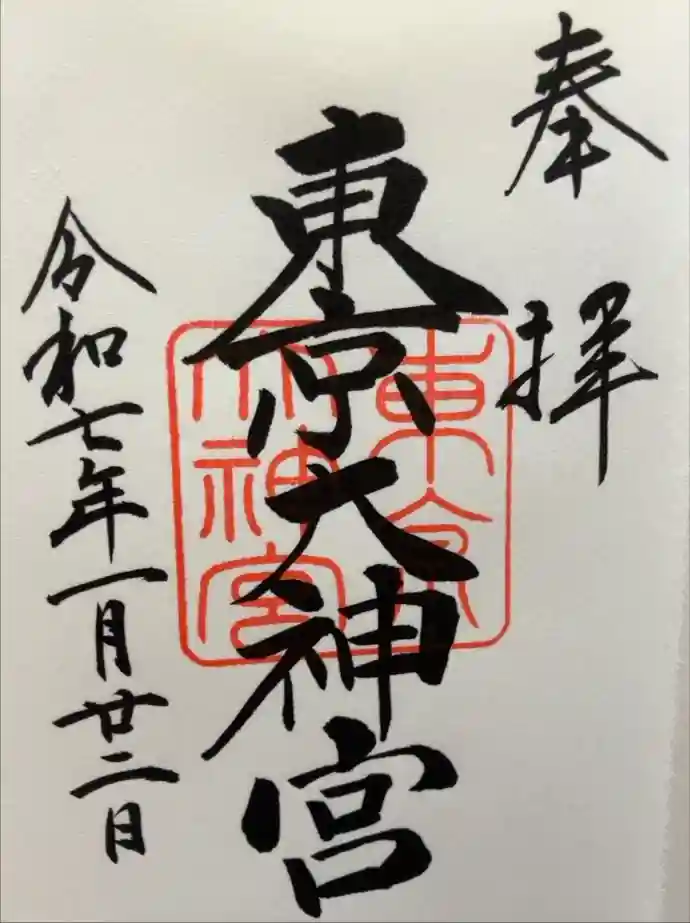 奉拝
東京大神宮
東京
大神宮
令和七年一月廿二日